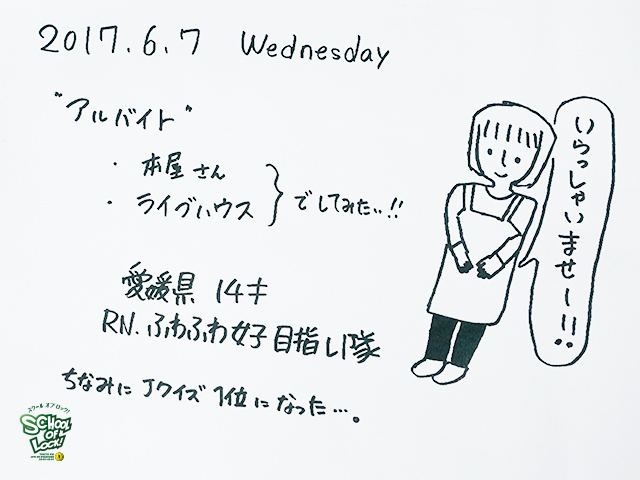 2017.6.7 Wednesday
"アルバイト"
・本屋さん
・ライブハウス
でしてみたい!!
いらっしゃいませー!!
愛媛県 14才
RN.ふわふわ女子目指し隊
ちなみにJクイズ1位になった…。
スクール オブ ロック!
SCHOOL
OF
LOCK!